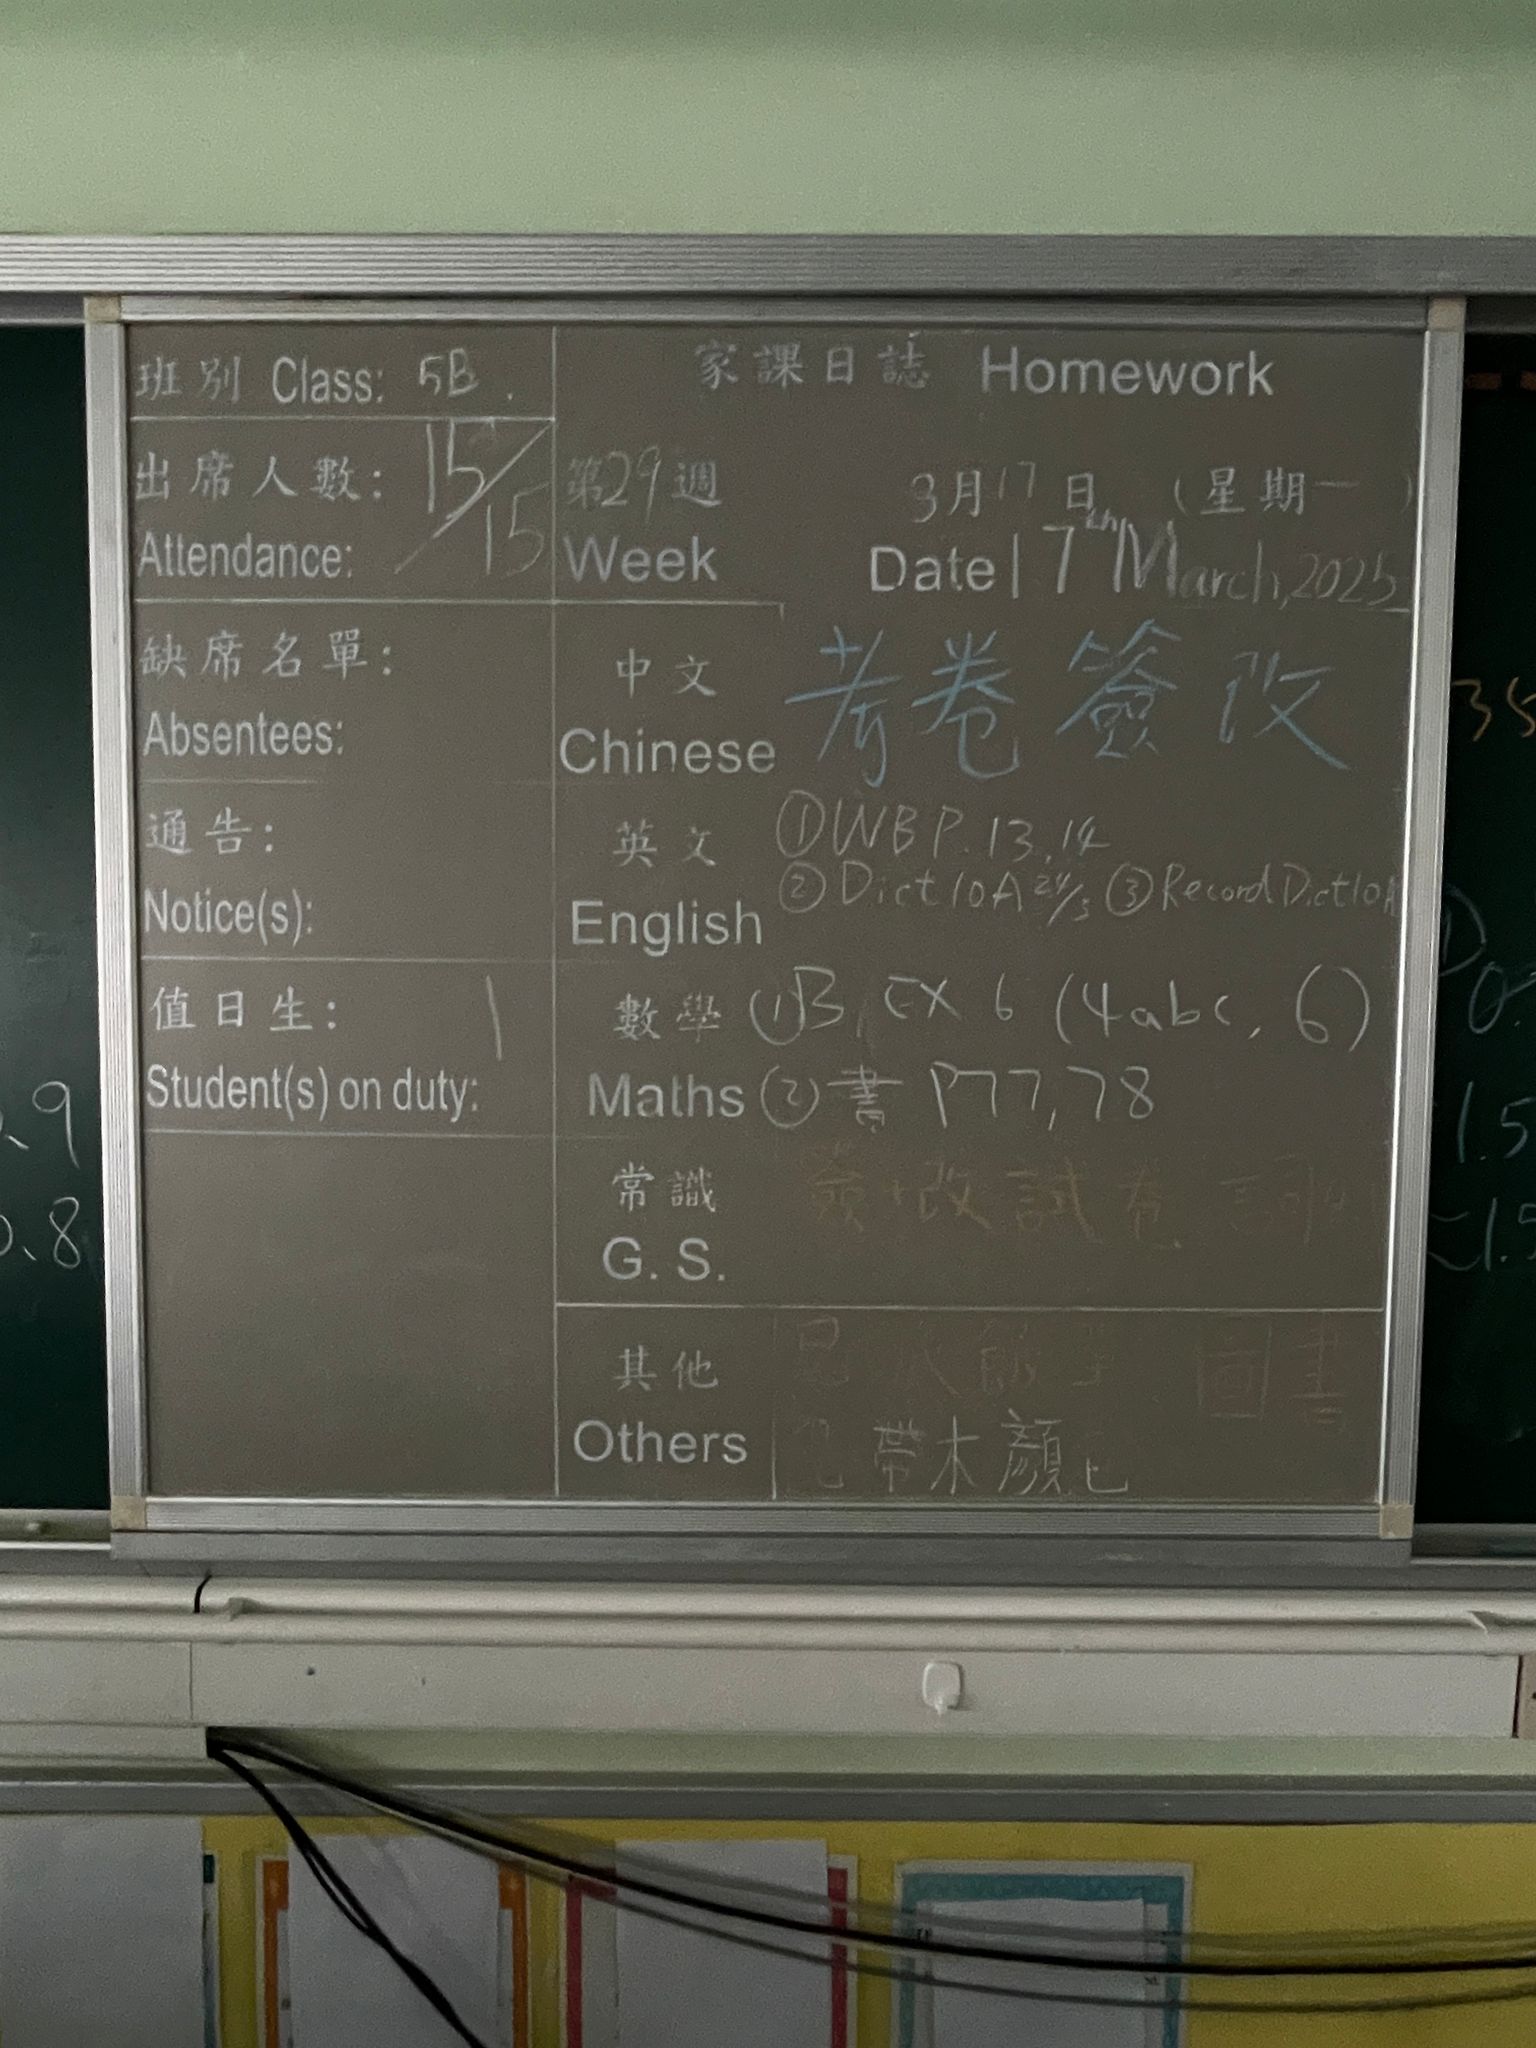 班別 Class: 5B.
家課日誌 Homework
出席人數: 15/15
Attendance:
第29週
Week
3月17日 (星期一)
Date 17th March, 2025
缺席名單:
Absentees:
通告:
Notice(s):
值日生: 1
Student(s) on duty:
中文 考卷簽改
Chinese
英文 ①WB P.13,14
②Dict 10A 24/3 ③Record Dict 10A
English
數學 ①B EX 6 (4abc, 6)
Maths ②書 P77,78
常識 簽+改試卷
G. S.
其他 圖書
Others 帶木顏色
35
.9
0.8
1.5